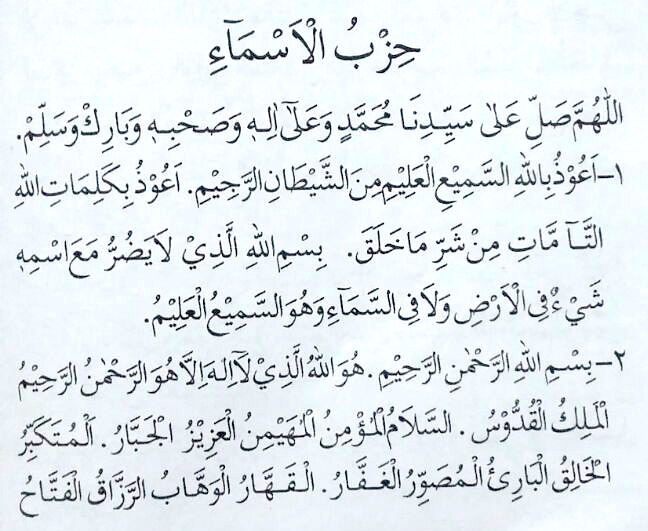 حِزْبُ الْاَسْمَآءِ
اَللّٰهُمَّ صَلِّ عَلٰى سَيِّدِنَا مُحَمَّدٍ وَعَلٰٓى اٰلِهٖ وَصَحْبِهٖ وَبَارِكْ وَسَلِّمْ.
١- اَعُوْذُ بِاللهِ السَّمِيْعِ الْعَلِيْمِ مِنَ الشَّيْطَانِ الرَّجِيْمِ. اَعُوْذُ بِكَلِمَاتِ اللهِ
التَّآ مَّاتِ مِنْ شَرِّ مَا خَلَقَ. بِسْمِ اللهِ الَّذِيْ لَا يَضُرُّ مَعَ اسْمِهٖ
شَيْءٌ فِى الْاَرْضِ وَلَا فِى السَّمَآءِ وَهُوَ السَّمِيْعُ الْعَلِيْمُ.
٢- بِسْمِ اللهِ الرَّحْمٰنِ الرَّحِيْمِ. هُوَ اللهُ الَّذِيْ لَآ اِلٰهَ اِلَّا هُوَ الرَّحْمٰنُ الرَّحِيْمُ
الْمَلِكُ الْقُدُّوْسُ. السَّلَامُ الْمُؤْمِنُ الْمُهَيْمِنُ الْعَزِيْزُ الْجَبَّارُ. الْمُتَكَبِّرُ
الْخَالِقُ الْبَارِئُ الْمُصَوِّرُ الْغَفَّارُ. الْقَهَّارُ الْوَهَّابُ الرَّزَّاقُ الْفَتَّاحُ